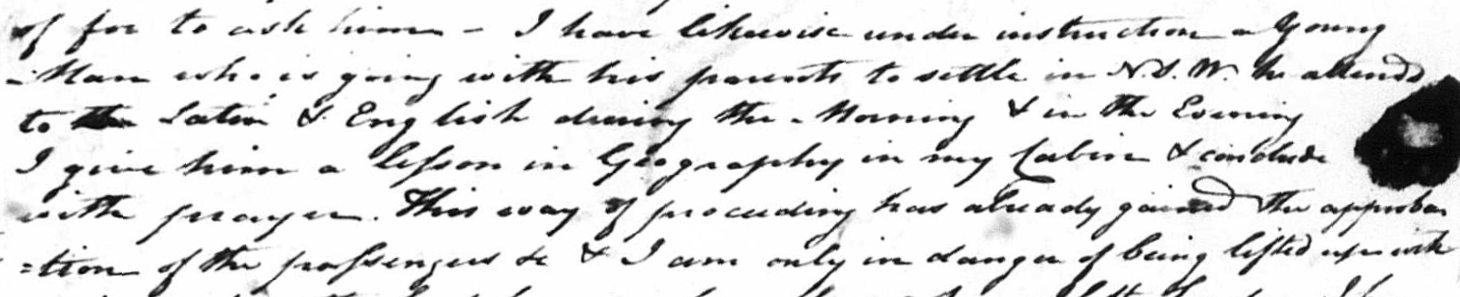 of for to ask him - I have likewise under instruction a Young
Man who is going with his parents to settle in N.S.W. he attends
to Latin & English during the Morning & in the Evening
I give him a lesson in Geography in my Cabin & conclude
with prayer. This way of proceeding has already gained the approba
=tion of the passengers &c & I am only in danger of being lifted up with